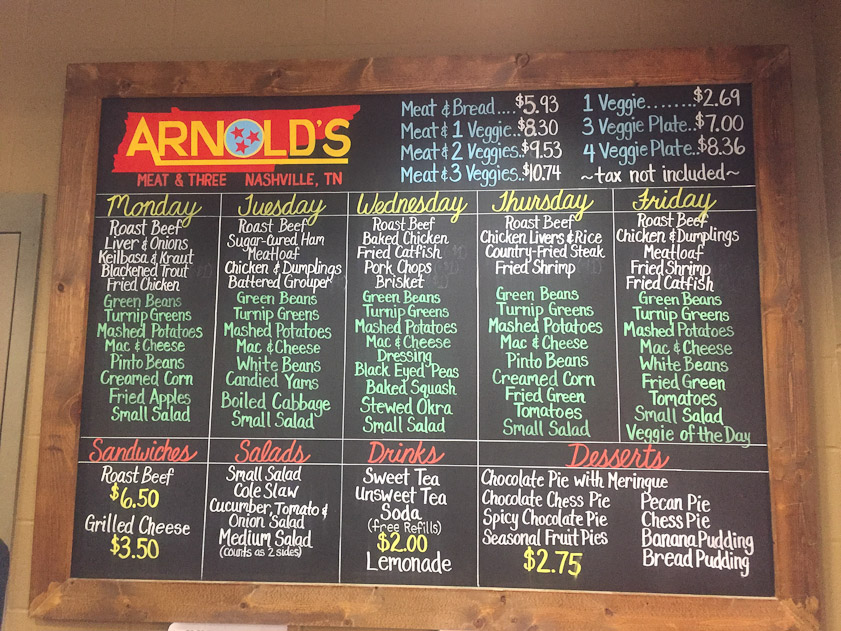 ARNOLD'S
MEAT & THREE NASHVILLE, TN
Meat & Bread....$5.93
Meat & 1 Veggie..$8.30
Meat & 2 Veggies..$9.53
Meat & 3 Veggies..$10.74
1 Veggie........$2.69
3 Veggie Plate..$7.00
4 Veggie Plate..$8.36
~tax not included~
Monday
Roast Beef
Liver & Onions
Keilbasa & Kraut
Blackened Trout
Fried Chicken
Green Beans
Turnip Greens
Mashed Potatoes
Mac & Cheese
Pinto Beans
Creamed Corn
Fried Apples
Small Salad
Tuesday
Roast Beef
Sugar-Cured Ham
Meatloaf
Chicken & Dumplings
Battered Grouper
Green Beans
Turnip Greens
Mashed Potatoes
Mac & Cheese
White Beans
Candied Yams
Boiled Cabbage
Small Salad
Wednesday
Roast Beef
Baked Chicken
Fried Catfish
Pork Chops
Brisket
Green Beans
Turnip Greens
Mashed Potatoes
Mac & Cheese
Dressing
Black Eyed Peas
Baked Squash
Stewed Okra
Small Salad
Thursday
Roast Beef
Chicken Livers & Rice
Country-Fried Steak
Fried Shrimp
Green Beans
Turnip Greens
Mashed Potatoes
Mac & Cheese
Pinto Beans
Creamed Corn
Fried Green
Tomatoes
Small Salad
Friday
Roast Beef
Chicken & Dumplings
Meatloaf
Fried Shrimp
Fried Catfish
Green Beans
Turnip Greens
Mashed Potatoes
Mac & Cheese
White Beans
Fried Green
Tomatoes
Small Salad
Veggie of the Day
Sandwiches
Roast Beef
$6.50
Grilled Cheese
$3.50
Salads
Small Salad
Cole Slaw
Cucumber, Tomato &
Onion Salad
Medium Salad
(counts as 2 sides)
Drinks
Sweet Tea
Unsweet Tea
Soda
(free Refills)
$2.00
Lemonade
Desserts
Chocolate Pie with Meringue
Chocolate Chess Pie
Spicy Chocolate Pie
Seasonal Fruit Pies
$2.75
Pecan Pie
Chess Pie
Banana Pudding
Bread Pudding